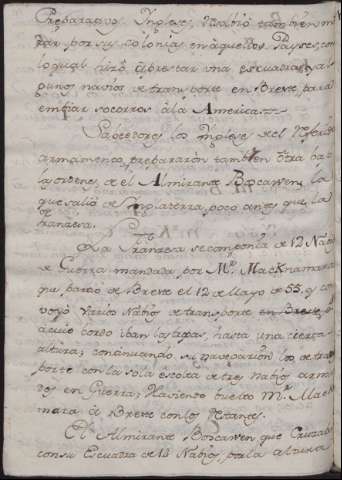 Preparativos Ingleses, se avió tambien m
tar, por sus colonias en aquellos Payses, con
lo qual hizo aprestar una escuadra, y al
gunos navios de transporte en Breste, para
embiar socorros a la America.
Sabedores los Ingleses del referido
armamento, prepararon tambien otra bajo
las ordenes de el Almirante Boscawen, la
que salió de Inglaterra, poco antes que la
francesa.
La francesa se componia de 12 Navios
de Guerra mandada, por Mr. MacKnamara
que partió de Breste el 12 de Mayo de 55, y con
voyó varios Navios de transporte en Breste, a
cuio bordo iban las tropas, hasta una cierta
altura; continuando su navegacion los de trans
porte con la sola escolta de tres Navios arma
dos en Guerra; Haviendo buelto Mr. Mack
mara a Breste con los restantes.
El Almirante Boscawen que Cruzaba
con su Escuadra de 14 Navios, por la altura